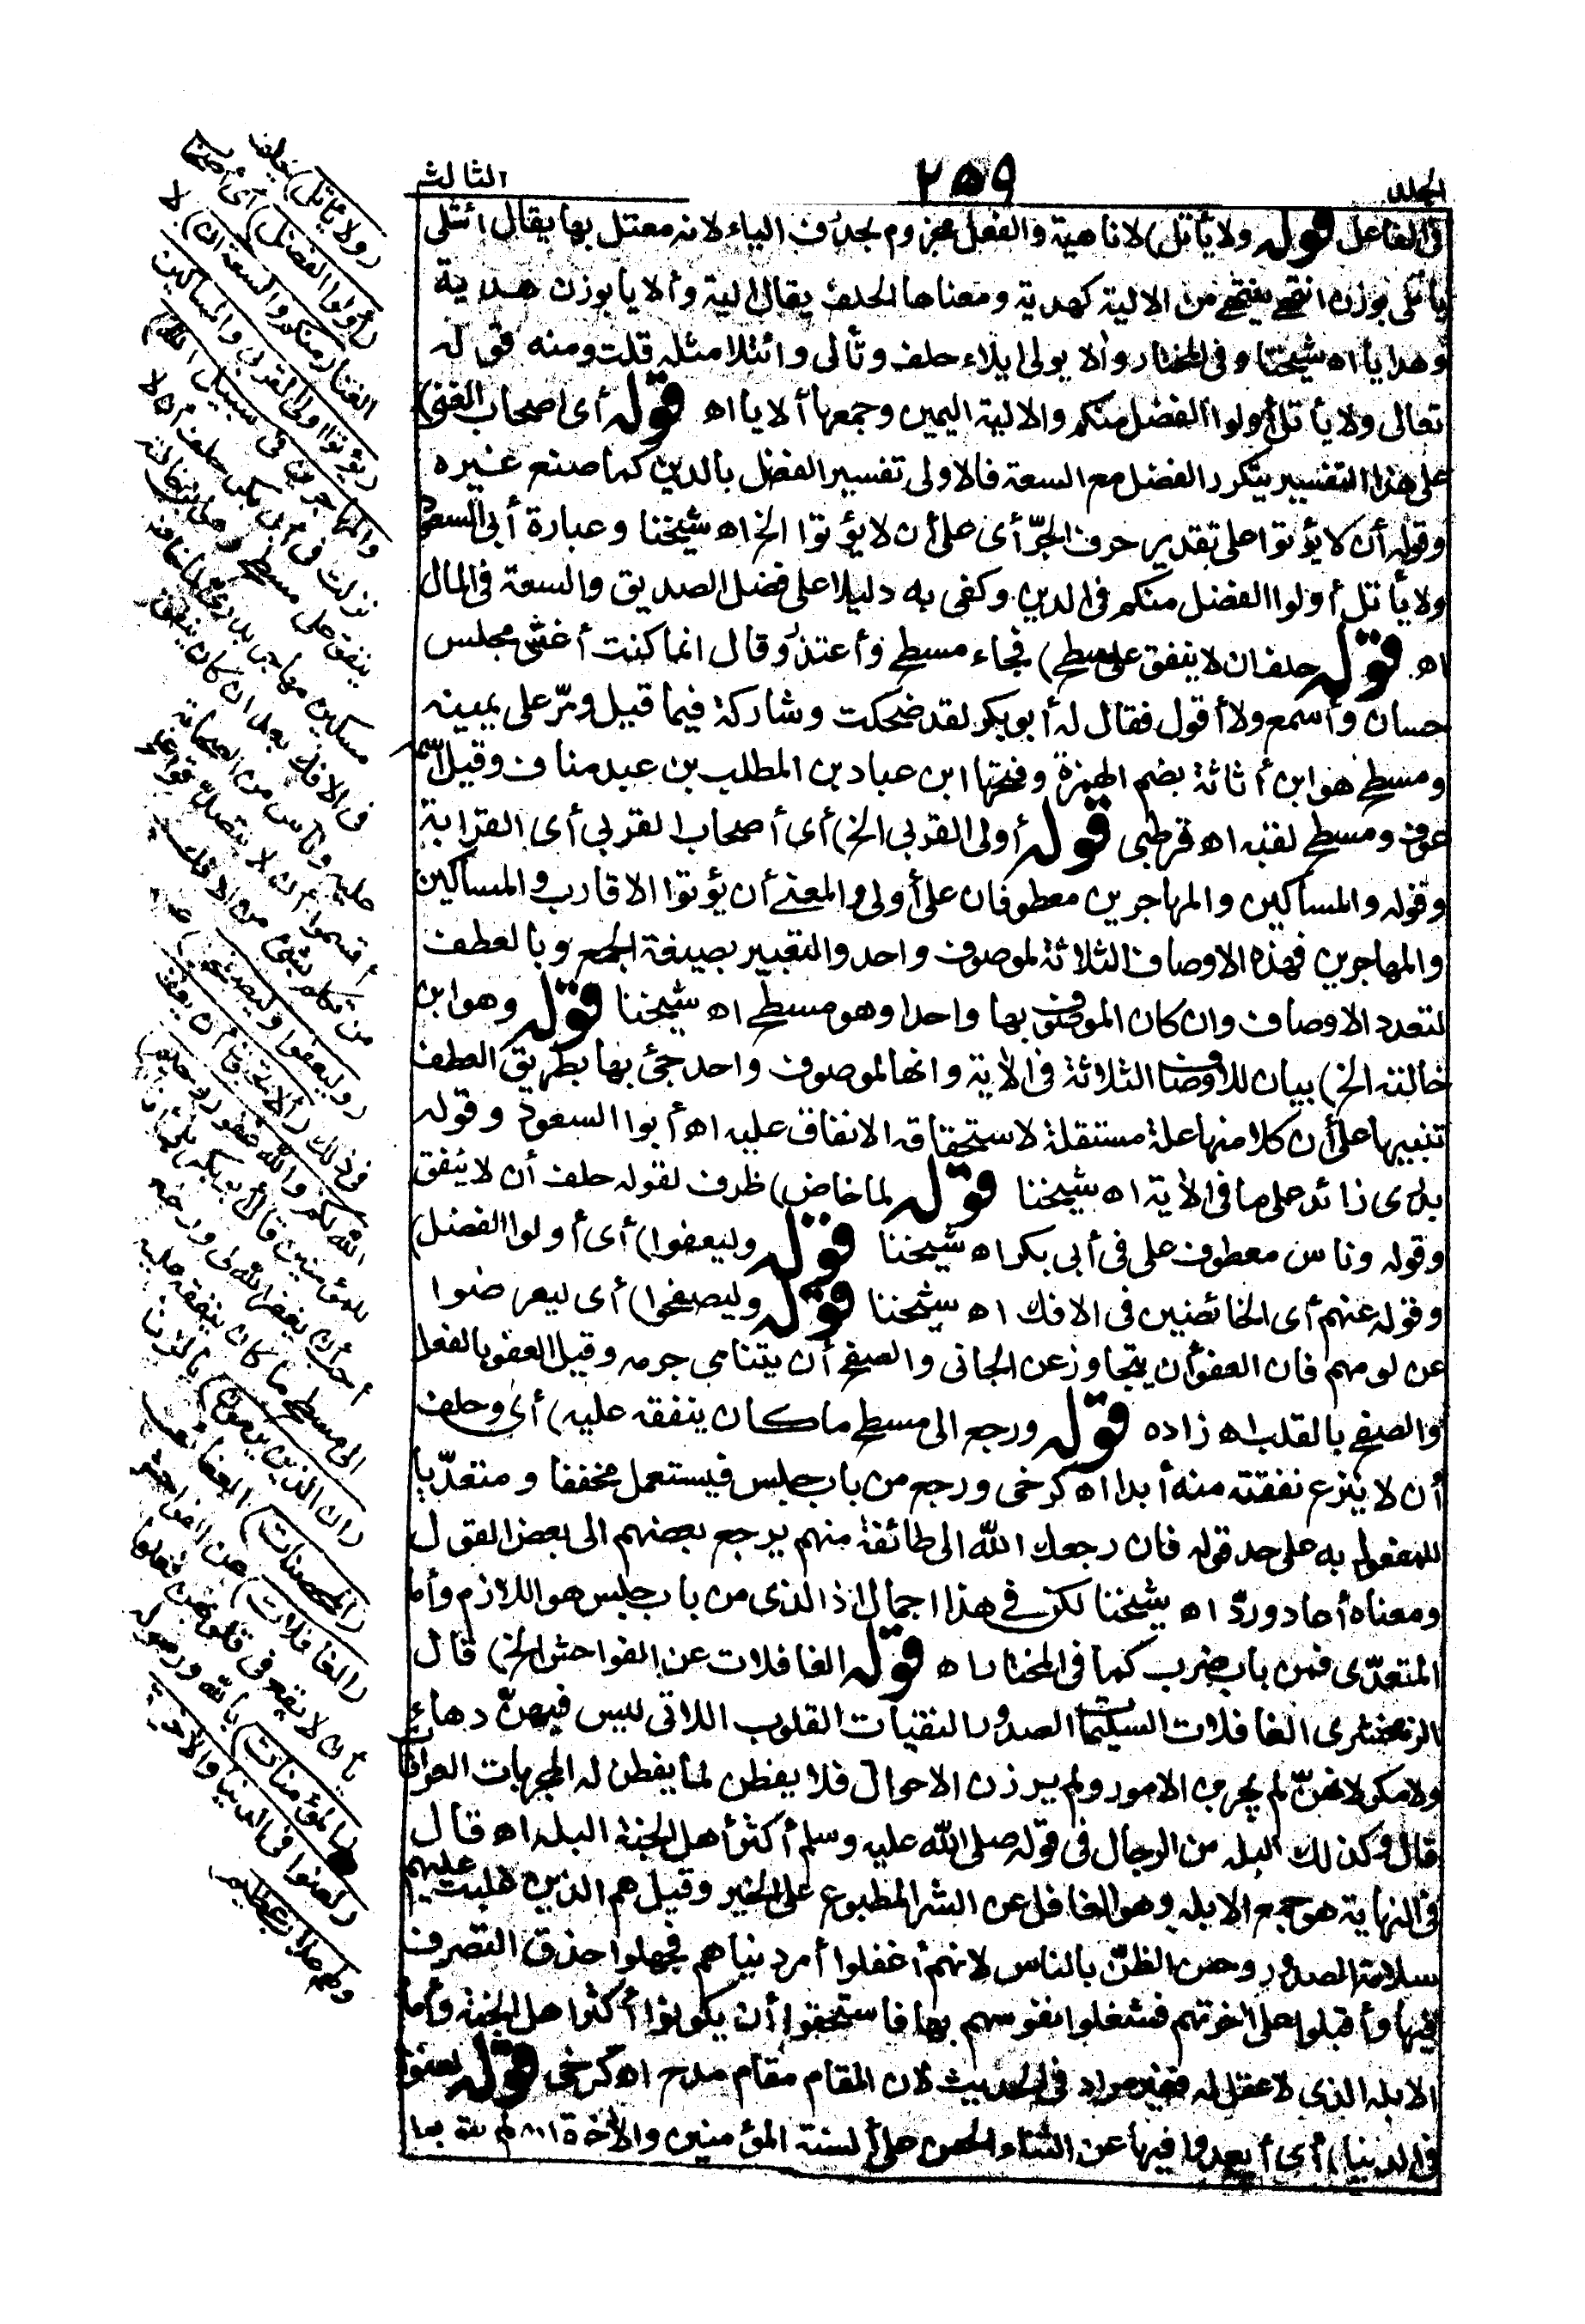 الجلد
٢٥٩
الثالث
فى الفاعل قوله ولا يأتل) لا ناهية والفعل مجزوم بحذف الياء لانه معتل بها يقال ائتلى
يأتلى بوزن انتهى ينتهى من الالية كهدية ومعناها الحلف يقال الية وألايا بوزن هدية
وهدايا اه شيخنا وفى المختار وألا يولى ايلاء حلف وتألى وائتلا مثله قلت ومنه قوله
تعالى ولا يأتل أولوا الفضل منكم والالية اليمين وجمعها ألايا اه قوله أى اصحاب الغنى)
على هذا التفسير يتكرر الفضل مع السعة فالاولى تفسير الفضل بالدين كما صنع غيره
وقوله أن لا يؤتوا على تقدير حرف الجرّ أى على أن لا يؤتوا الخ اه شيخنا وعبارة أبى السعود
ولا يأتل أولوا الفضل منكم فى الدين وكفى به دليلا على فضل الصديق والسعة فى المال
اه. قوله حلف ان لا ينفق على مسطح) فجاء مسطح وأعتذر وقال انما كنت أغشى مجلس
حسان وأسمع ولا أقول فقال له أبو بكر لقد ضحكت وشاركت فيما قيل ومرّ على يمينه
ومسطح هو ابن أثاثة بضم الهمزة وفتحها ابن عباد بن المطلب بن عبد مناف وقيل اسمه
عوف ومسطح لقبه اه قرطبى قوله أولى القربى الخ) أى أصحاب القربى أى القرابة
وقوله والمساكين والمهاجرين معطوفان على أولى والمعنى أن يؤتوا الاقارب والمساكين
والمهاجرين فهذه الاوصاف الثلاثة لموصوف واحد والتعبير بصيغة الجمع وبالعطف
لتعدد الاوصاف وان كان الموصوف بها واحدا وهو مسطح اه شيخنا قوله وهو ابن
خالته الخ) بيان للاوصاف الثلاثة فى الآية وانها لموصوف واحد جئ بها بطريق العطف
تنبيها على أن كلا منها علة مستقلة لاستحقاقه الانفاق عليه اه أبوا السعود وقوله
بدرى زائد على ما فى الآية اه شيخنا قوله لما خاض) ظرف لقوله حلف أن لا ينفق
وقوله وناس معطوف على فى أبى بكر اه شيخنا قوله وليعفوا) أى أولوا الفضل)
وقوله عنهم أى الخائضين فى الافك اه شيخنا قوله وليصفحوا) أى ليعرضوا
عن لومهم فان العفو أن يتجاوز عن الجانى والصفح أن يتناسى جرمه وقيل العفو بالفعل
والصفح بالقلب اه زاده قوله ورجع الى مسطح ما كان ينفقه عليه) أى وحلف
أن لا ينزع نفقته منه أبدا اه كرخى ورجع من باب جلس فيستعمل مخففا ومتعدّيا
للمفعول به على حد قوله فان رجعك الله الى طائفة منهم يرجع بعضهم الى بعض القول
ومعناه أعاد وردّ اه شيخنا لكن فى هذا اجمال اذ الذى من باب جلس هو اللازم وأما
المتعدّى فمن باب ضرب كما فى المختار اه قوله الغافلات عن الفواحش الخ) قال
الزمخشرى الغافلات السليمات الصدور النقيات القلوب اللاتى ليس فيهنّ دهاء
ولا مكر لانهنّ لم يجربن الامور ولم يرزن الاحوال فلا يفطن لما يفطن له المجربات العرافات
قال وكذلك البله من الرجال فى قوله صلى الله عليه وسلم أكثر أهل الجنة البله اه قال
فى النهاية هو جمع الابله وهو الغافل عن الشر المطبوع على الخير وقيل هم الذين غلبت عليهم
سلامة الصدور وحسن الظنّ بالناس لانهم أغفلوا أمر دنياهم فجهلوا حذق التصرف
فيها وأقبلوا على آخرتهم فشغلوا نفوسهم بها فاستحقوا أن يكونوا أكثر اهل الجنة وأما
الابله الذى لا عقل له فغير مراد فى الحديث لان المقام مقام مدح اه كرخى قوله لعنوا
فى الدنيا) أى أبعدوا فيها عن الثناء الحسن على ألسنة المؤمنين والآخرة
(ولا يأتل) يحلف
(أولوا الفضل) أى أصحاب
الغنى (منكم والسعة ان) لا
(يؤتوا أولى القربى والمساكين
والمهاجرين فى سبيل الله)
نزلت فى أبى بكر حلف أن لا
ينفق على مسطح وهو ابن خالته
مسكين مهاجر بدرى لما خاض
فى الافك بعد ان كان ينفق
عليه وناس من الصحابة
أقسموا أن لا يتصدّقوا على
من تكلم بشئ من الافك
(وليعفوا وليصفحوا) عنهم
فى ذلك (ألا تحبون أن يغفر
الله لكم والله غفور رحيم)
للمؤمنين قال أبو بكر بلى أنا
أحب أن يغفر الله لى ورجع
الى مسطح ما كان ينفقه عليه
(ان الذين يرمون) بالزنا
(المحصنات) العفائف
(الغافلات) عن الفواحش
بأن لا يقع فى قلوبهن فعلها
(المؤمنات) بالله ورسوله
(لعنوا فى الدنيا والآخرة
ولهم عذاب عظيم